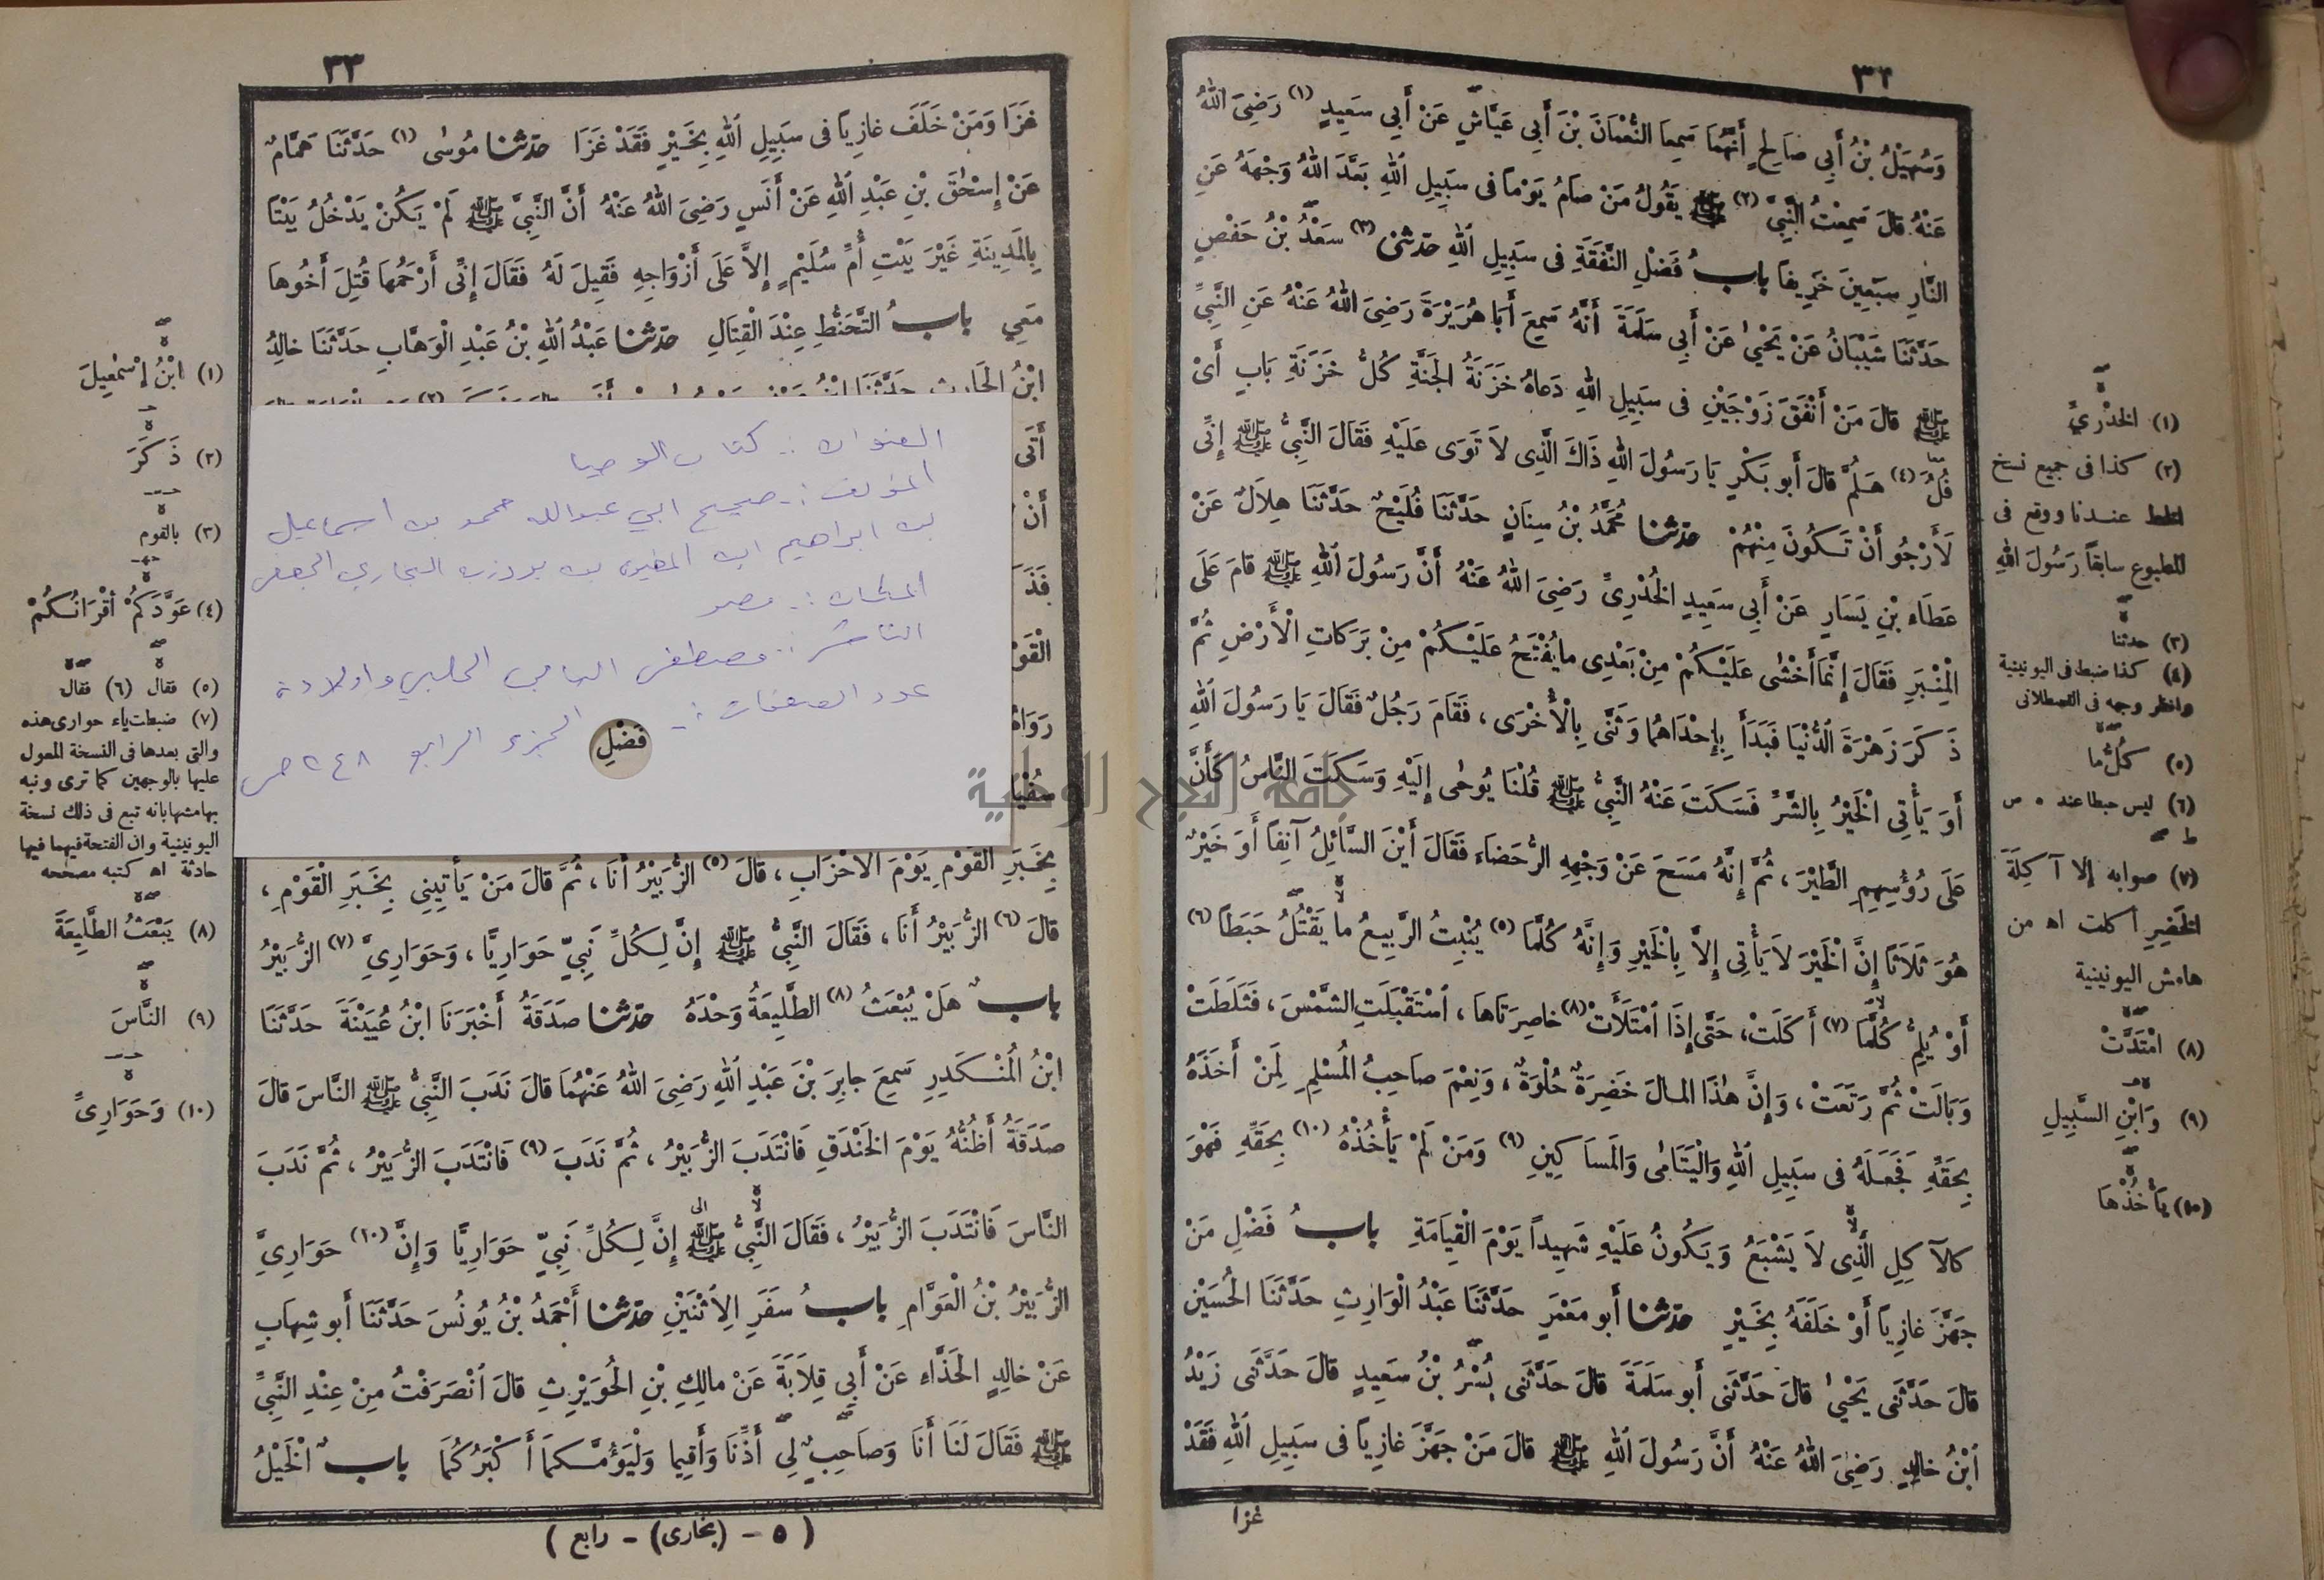 ٣٢
وَسُهَيْلُ بْنُ أَبِي صَالِحٍ أَنَّهُمَا سَمِعَا النُّعْمَانَ بْنَ أَبِي عَيَّاشٍ عَنْ أَبِي سَعِيدٍ (١) رَضِيَ اللهُ
عَنْهُ قَالَ سَمِعْتُ النَّبِيَّ (٢) ﷺ يَقُولُ مَنْ صَامَ يَوْمًا فِى سَبِيلِ اللهِ بَعَّدَ اللهُ وَجْهَهُ عَنِ
النَّارِ سَبْعِينَ خَرِيفًا بابُ فَضْلِ النَّفَقَةِ فِى سَبِيلِ اللهِ حَدَّثَنِى (٣) سَعْدُ بْنُ حَفْصٍ
حَدَّثَنَا شَيْبَانُ عَنْ يَحْيَى عَنْ أَبِي سَلَمَةَ أَنَّهُ سَمِعَ أَبَا هُرَيْرَةَ رَضِيَ اللهُ عَنْهُ عَنِ النَّبِيِّ
ﷺ قَالَ مَنْ أَنْفَقَ زَوْجَيْنِ فِى سَبِيلِ اللهِ دَعَاهُ خَزَنَةُ الجَنَّةِ كُلُّ خَزَنَةِ بَابٍ أَىْ
فُلُ (٤) هَلُمَّ قَالَ أَبُو بَكْرٍ يَا رَسُولَ اللهِ ذَاكَ الَّذِى لَا تَوَى عَلَيْهِ فَقَالَ النَّبِيُّ ﷺ إِنِّى
لَأَرْجُو أَنْ تَكُونَ مِنْهُمْ حَدَّثَنَا مُحَمَّدُ بْنُ سِنَانٍ حَدَّثَنَا فُلَيْحٌ حَدَّثَنَا هِلَالٌ عَنْ
عَطَاءِ بْنِ يَسَارٍ عَنْ أَبِي سَعِيدٍ الخُدْرِيِّ رَضِيَ اللهُ عَنْهُ أَنَّ رَسُولَ اللهِ ﷺ قَامَ عَلَى
الْمِنْبَرِ فَقَالَ إِنَّمَا أَخْشَى عَلَيْكُمْ مِنْ بَعْدِى مَا يُفْتَحُ عَلَيْكُمْ مِنْ بَرَكَاتِ الْأَرْضِ ثُمَّ
ذَكَرَ زَهْرَةَ الدُّنْيَا فَبَدَأَ بِإِحْدَاهُمَا وَثَنَّى بِالْأُخْرَى ، فَقَامَ رَجُلٌ فَقَالَ يَا رَسُولَ اللهِ
أَوَ يَأْتِى الْخَيْرُ بِالشَّرِّ فَسَكَتَ عَنْهُ النَّبِيُّ ﷺ قُلْنَا يُوحَى إِلَيْهِ وَسَكَتَ النَّاسُ كَأَنَّ
عَلَى رُؤُسِهِمِ الطَّيْرَ ، ثُمَّ إِنَّهُ مَسَحَ عَنْ وَجْهِهِ الرُّحَضَاءَ فَقَالَ أَيْنَ السَّائِلُ آنِفًا أَوَ خَيْرٌ
هُوَ ثَلَاثًا إِنَّ الْخَيْرَ لَا يَأْتِى إِلَّا بِالْخَيْرِ وَإِنَّهُ كُلَّمَا (٥) يُنْبِتُ الرَّبِيعُ مَا يَقْتُلُ حَبَطًا (٦)
أَوْ يُلِمُّ كُلَّمَا (٧) أَكَلَتْ، حَتَّى إِذَا امْتَلَأَتْ (٨) خَاصِرَتَاهَا ، اسْتَقْبَلَتِ الشَّمْسَ ، فَثَلَطَتْ
وَبَالَتْ ثُمَّ رَتَعَتْ ، وَإِنَّ هَذَا الْمَالَ خَضِرَةٌ حُلْوَةٌ ، وَنِعْمَ صَاحِبُ الْمُسْلِمِ لِمَنْ أَخَذَهُ
بِحَقِّهِ فَجَعَلَهُ فِى سَبِيلِ اللهِ وَالْيَتَامَى وَالْمَسَاكِينِ (٩) وَمَنْ لَمْ يَأْخُذْهُ (١٠) بِحَقِّهِ فَهْوَ
كَالآكِلِ الَّذِى لَا يَشْبَعُ وَيَكُونُ عَلَيْهِ شَهِيدًا يَوْمَ الْقِيَامَةِ بابُ فَضْلِ مَنْ
جَهَّزَ غَازِيًا أَوْ خَلَفَهُ بِخَيْرٍ حَدَّثَنَا أَبُو مَعْمَرٍ حَدَّثَنَا عَبْدُ الْوَارِثِ حَدَّثَنَا الْحُسَيْنُ
قَالَ حَدَّثَنِى يَحْيَى قَالَ حَدَّثَنِى أَبُو سَلَمَةَ قَالَ حَدَّثَنِى بُسْرُ بْنُ سَعِيدٍ قَالَ حَدَّثَنِى زَيْدُ
ابْنُ خَالِدٍ رَضِيَ اللهُ عَنْهُ أَنَّ رَسُولَ اللهِ ﷺ قَالَ مَنْ جَهَّزَ غَازِيًا فِى سَبِيلِ اللهِ فَقَدْ
غزا
(١) الخُدْرِيِّ
(٢) كذا فى جميع نسخ
الخط عندنا ووقع فى
المطبوع سابقاً رَسُولَ اللهِ
(٣) حدثنا
(٤) كذا ضبط فى اليونينية
وانظر وجهه فى القسطلانى
(٥) كُلُّ مَا
(٦) ليس حبطا عند ه ص
ط
(٧) صوابه إلا آكِلَةَ
الخَضِرِ أكلت اه من
هامش اليونينية
(٨) امْتَدَّتْ
(٩) وَابْنِ السَّبِيلِ
(١٠) يَأْخُذْهَا
٣٣
غَزَا وَمَنْ خَلَفَ غَازِيًا فِى سَبِيلِ اللهِ بِخَيْرٍ فَقَدْ غَزَا حَدَّثَنَا مُوسَى (١) حَدَّثَنَا هَمَّامٌ
عَنْ إِسْحَقَ بْنِ عَبْدِ اللهِ عَنْ أَنَسٍ رَضِيَ اللهُ عَنْهُ أَنَّ النَّبِيَّ ﷺ لَمْ يَكُنْ يَدْخُلُ بَيْتًا
بِالْمَدِينَةِ غَيْرَ بَيْتِ أُمِّ سُلَيْمٍ إِلَّا عَلَى أَزْوَاجِهِ فَقِيلَ لَهُ فَقَالَ إِنِّى أَرْحَمُهَا قُتِلَ أَخُوهَا
مَعِي بابُ التَّحَنُّطِ عِنْدَ الْقِتَالِ حَدَّثَنَا عَبْدُ اللهِ بْنُ عَبْدِ الْوَهَّابِ حَدَّثَنَا خَالِدُ
ابْنُ الْحَارِثِ حَدَّثَنَا
أَتَى
أَنْ
فَذَ
الْقَوْ
رَوَا
سُفْيَ
العنوان :- كتاب الوصايا
المؤلف :- صحيح ابي عبدالله محمد بن اسماعيل
بن ابراهيم ابن المغيرة بن بردزبه البخاري الجعفي
المكان :- مصر
الناشر :- مصطفى البابي الحلبي واولاده
عدد الصفحات :- الجزء الرابع ٢٤٨ ص
فَضْلِ
جامعة النجاح الوطنية
بِخَبَرِ الْقَوْمِ يَوْمَ الْأَحْزَابِ ، قَالَ (٥) الزُّبَيْرُ أَنَا ، ثُمَّ قَالَ مَنْ يَأْتِينِي بِخَبَرِ الْقَوْمِ ،
قَالَ (٦) الزُّبَيْرُ أَنَا ، فَقَالَ النَّبِيُّ ﷺ إِنَّ لِكُلِّ نَبِيٍّ حَوَارِيًّا ، وَحَوَارِيَّ (٧) الزُّبَيْرُ
بابٌ هَلْ يُبْعَثُ (٨) الطَّلِيعَةُ وَحْدَهُ حَدَّثَنَا صَدَقَةُ أَخْبَرَنَا ابْنُ عُيَيْنَةَ حَدَّثَنَا
ابْنُ الْمُنْكَدِرِ سَمِعَ جَابِرَ بْنَ عَبْدِ اللهِ رَضِيَ اللهُ عَنْهُمَا قَالَ نَدَبَ النَّبِيُّ ﷺ النَّاسَ قَالَ
صَدَقَةُ أَظُنُّهُ يَوْمَ الْخَنْدَقِ فَانْتَدَبَ الزُّبَيْرُ ، ثُمَّ نَدَبَ (٩) فَانْتَدَبَ الزُّبَيْرُ ، ثُمَّ نَدَبَ
النَّاسَ فَانْتَدَبَ الزُّبَيْرُ ، فَقَالَ النَّبِيُّ ﷺ إِنَّ لِكُلِّ نَبِيٍّ حَوَارِيًّا وَإِنَّ (١٠) حَوَارِيَّ
الزُّبَيْرُ بْنُ الْعَوَّامِ بابُ سَفَرِ الِاثْنَيْنِ حَدَّثَنَا أَحْمَدُ بْنُ يُونُسَ حَدَّثَنَا أَبُو شِهَابٍ
عَنْ خَالِدٍ الْحَذَّاءِ عَنْ أَبِي قِلَابَةَ عَنْ مَالِكِ بْنِ الْحُوَيْرِثِ قَالَ انْصَرَفْتُ مِنْ عِنْدِ النَّبِيِّ
ﷺ فَقَالَ لَنَا أَنَا وَصَاحِبٍ لِي أَذِّنَا وَأَقِيمَا وَلْيَؤُمَّكُمَا أَكْبَرُكُمَا بابٌ الْخَيْلُ
( ٥ - (بخارى) - رابع )
(١) ابْنُ إِسْمَعِيلَ
(٢) ذَكَرَ
(٣) بالقوم
(٤) عَوَّدَكُمْ أَقْرَانُكُمْ
(٥) فقال (٦) فقال
(٧) ضبطت ياء حوارى هذه
والتى بعدها فى النسخة المعول
عليها بالوجهين كما ترى ونبه
بهامشها بانه تبع فى ذلك نسخة
اليونينية وان الفتحة فيهما فيها
حادثة اه كتبه مصححه
(٨) يَبْعَثُ الطَّلِيعَةَ
(٩) النَّاسَ
(١٠) وَحَوَارِيِّ